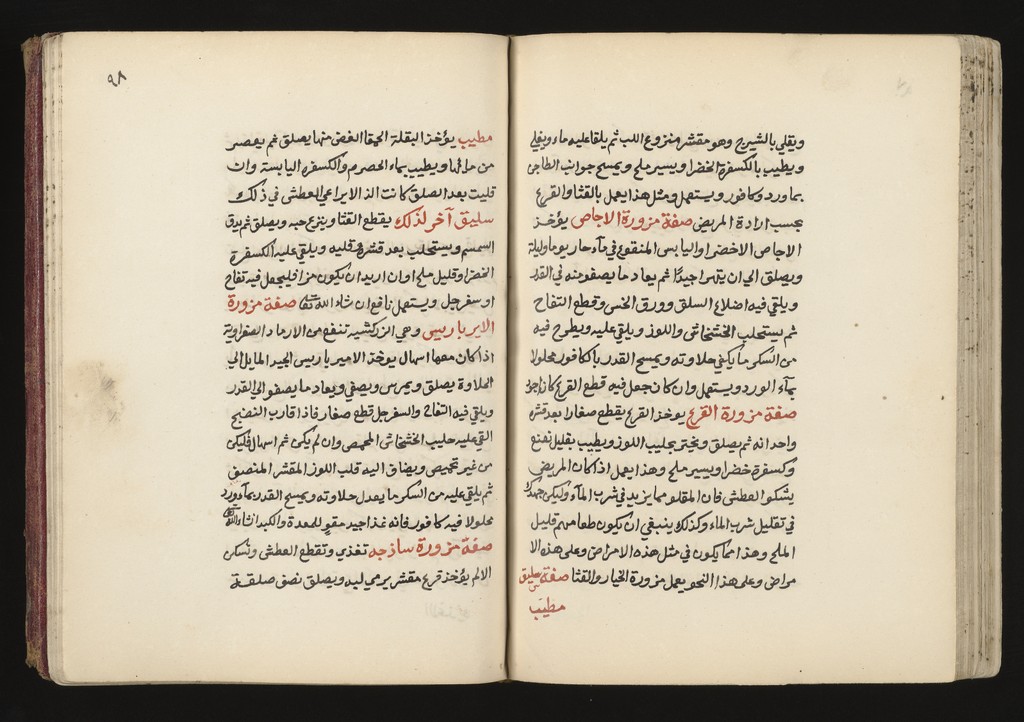 ويقلي بالشيرج وهو مقشر منزوع اللب ثم يلقا عليه ماء ويغلي
ويطيب بالكسفرة الخضرا ويسير ملح ويمسح جوانب الطاجن
بماورد وكافور ويستعمل ومثل هذا يعمل بالقثا والقرع
بحسب ارادة المريض صفة مزورة الاجاص يؤخذ
الاجاص الاخضر او اليابس المنقوع في ماء حار يوما وليلة
ويصلق الي ان يتهرا جيدًا ثم يعاد ما يصفو منه في القدر
ويلقي فيه اضلاع السلق وورق الخس وقطع التفاح
ثم يستحلب الخشخاش واللوز ويلقي عليه ويطرح فيه
من السكر ما يكفي حلاوته ويمسح القدر بالكافور محلولا
بماء الورد ويستعمل وان كان جعل فيه قطع القرع كان اجود
صفة مزورة القرع يوخذ القرع يقطع صغارا بعد قشره
واحدانه ثم يصلق ويخثر بحليب اللوز ويطيب بقليل نعنع
وكسفرة خضرا ويسير ملح وهذا يعمل اذا كان المريض
يشكو العطش فان المقلو مما يزيد في شرب الماء وليكن جهدك
في تقليل شرب الماء وكذلك ينبغي ان يكون طعامهم قليل
الملح وهذا انما يكون في مثل هذه الامراض وعلي هذه الا
مراض وعلي هذا النحو يعمل مزورة الخيار والقثا صفة سليق
مطيب
٩٨
مطيب يؤخذ البقلة الحمقا الغض منها يصلق ثم يعصر
من مائها ويطيب بماء الحصرم والكسفره اليابسة وان
قليت بعد الصلق كانت الذ الا يراعي العطش في ذلك
سليق آخر لذلك يقطع القثا وينزع حبه ويصلق ثم يدق
السمسم ويستحلب بعد قشره وقليه ويلقي عليه الكسفرة
الخضرا وقليل ملح وان اريد ان يكون مزا فليجعل فيه تفاح
او سفرجل ويستعمل نافع ان شاء الله تعا صفة مزورة
الاير باريس وهي الزركشيه تنفع من الارماد الصفراوية
اذا كان معها اسهال يوخذ الامير باريس الجيد المايل الي
الحلاوة يصلق ويمرس ويصفي ويعاد ما يصفو الي القدر
ويلقي فيه التفاح والسفرجل قطع صغار فاذا قارب النضج
القي عليه حليب الخشخاش المحمص وان لم يكن ثم اسهال فليكن
من غير تحميص ويضاق اليه قلب اللوز المقشر المنصف
ثم يلقي عليه من السكر ما يعدل حلاوته ويمسح القدر بماء ورد
محلولا فيه كافور فانه غذا جيد مقو للمعدة والكبد انشاء الله
صفة مزورة ساذجه تغذي وتقطع العطش وتسكن
الالم يؤخذ قرع مقشر يرمي لبه ويصلق نصف صلقة